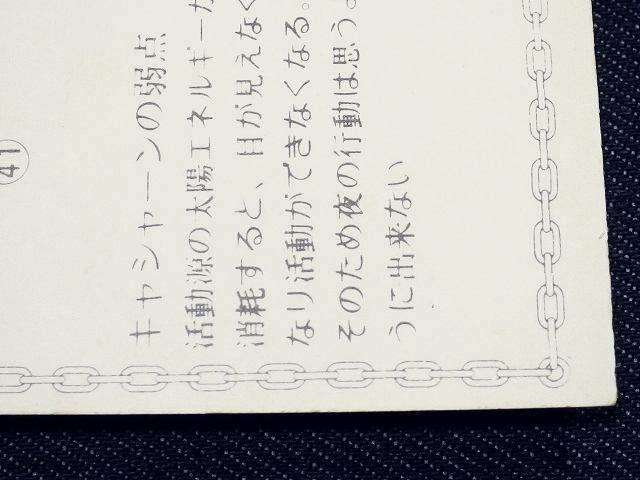 41
キャシャーンの弱点
活動源の太陽エネルギーが
消耗すると、目が見えなく
なり活動ができなくなる。
そのため夜の行動は思う。
うに出来ない